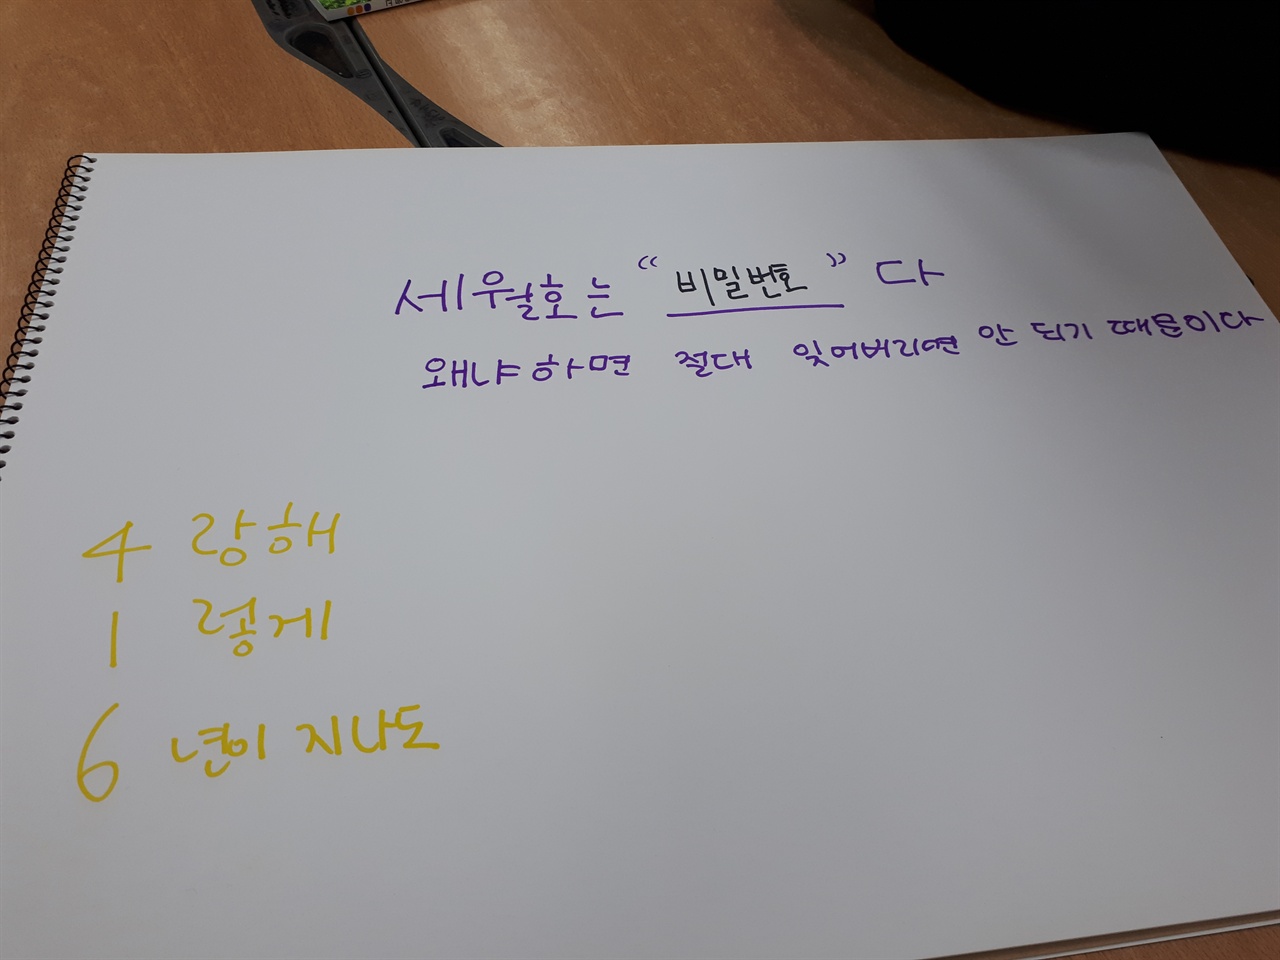 세월호는 “비밀번호” 다
왜냐하면 절대 잊어버리면 안 되기 때문이다
4 랑해
1 렇게
6 년이 지나도